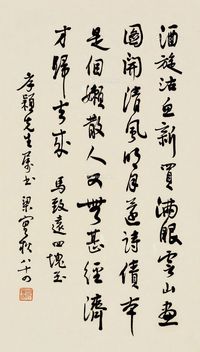 酒旋沽魚新買滿眼雲山畫
圖開清風明月還詩債本
是個懶散人又無甚經濟
才歸去來 馬致遠四塊玉
孝穎先生屬書 梁實秋八十四